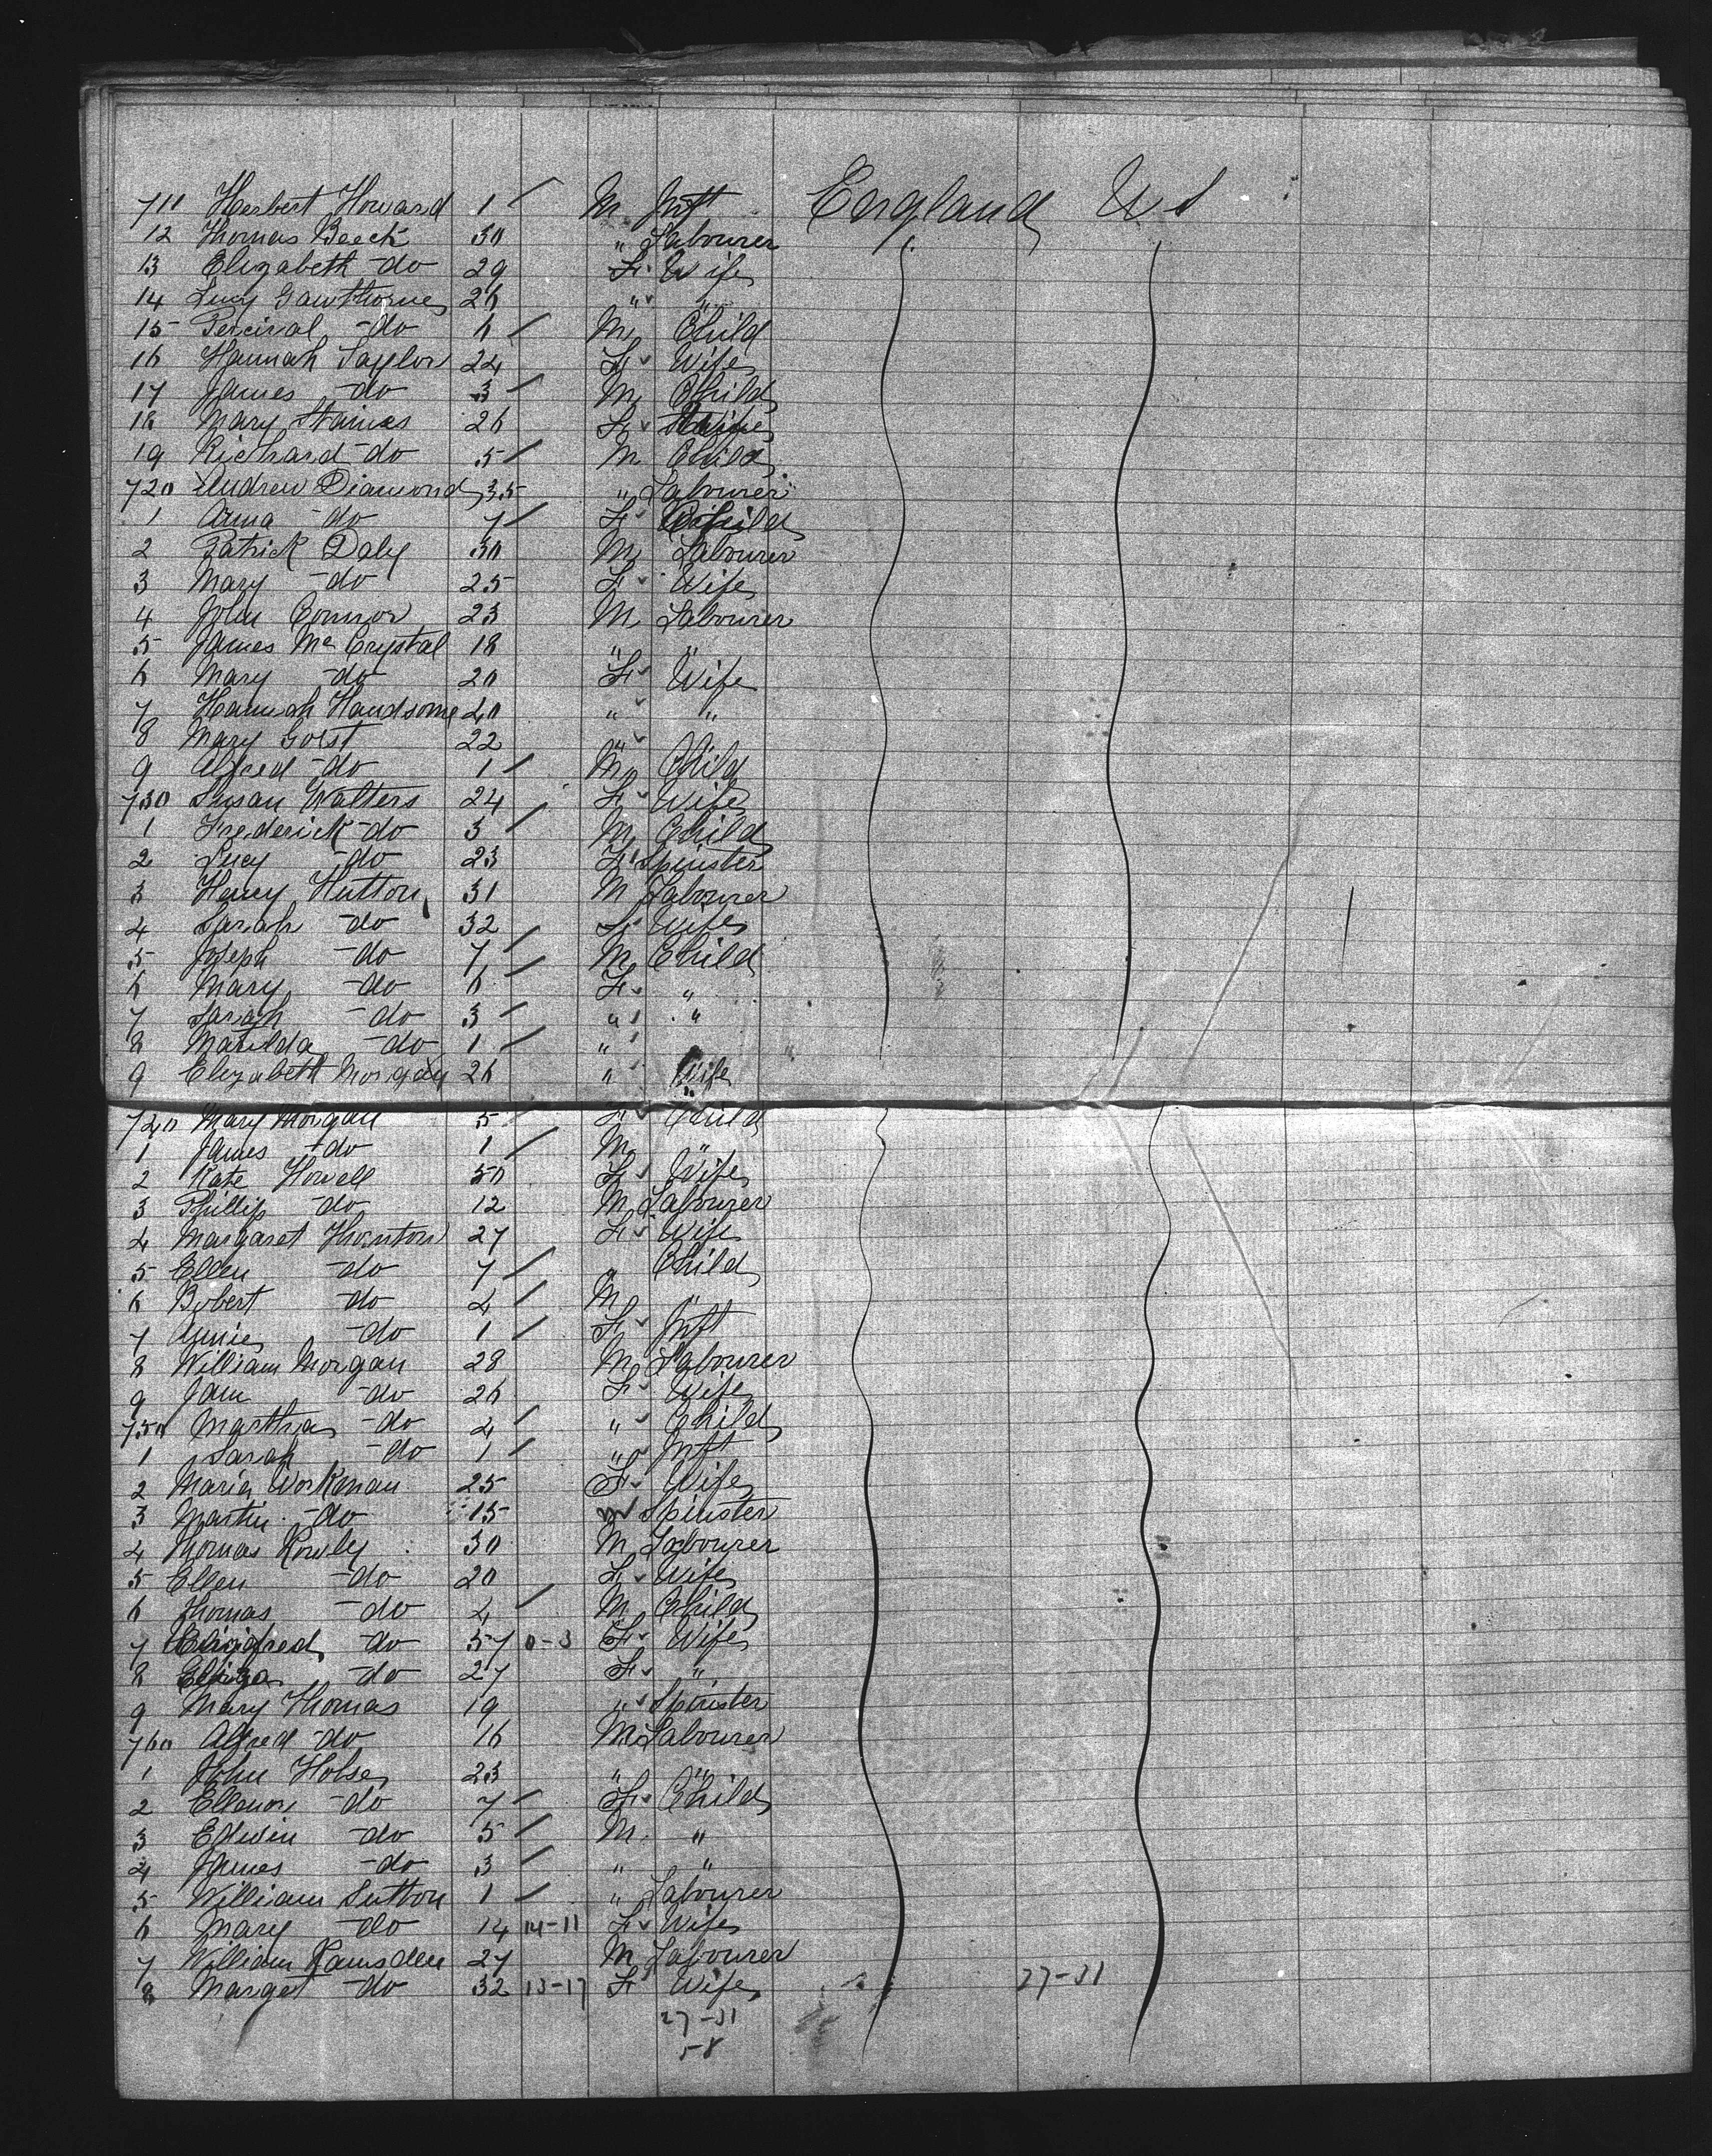 711 Herbert Howard 1 / M Inft England U S
12 Thomas Beeck 30 " Labourer
13 Elizabeth -do 29 F Wife
14 Lucy Gawthorne 26 " "
15 Percival -do 6 / M Child
16 Hannah Taylor 24 F Wife
17 James -do 3 / M Child
18 Mary Staines 26 F Wife
19 Richard -do 5 / M Child
720 Andrew Diamond 35 " Labourer
1 Anna -do 7 / F Child
2 Patrick Daly 30 M Labourer
3 Mary -do 25 F Wife
4 John Connor 23 M Labourer
5 James Mc Crystal 18 " "
6 Mary -do 20 F Wife
7 Hannah Handsome 20 " "
8 Mary Gorst 22 "
9 Alfred -do 1 / M Child
730 Susan Walters 24 F Wife
1 Frederick -do 3 / M Child
2 Lucy -do 23 F Spinster
3 Henry Hutton 31 M Labourer
4 Sarah -do 32 F Wife
5 Joseph -do 7 / M Child
6 Mary -do 6 / F "
7 Sarah -do 3 / " "
8 Matilda -do 1 / "
9 Elizabeth Morgan 26 " Wife
740 Mary Morgan 5 / F Child
1 James -do 1 / M "
2 Kate Howell 50 F Wife
3 Phillip -do 12 M Labourer
4 Margaret Thornton 27 F Wife
5 Ellen -do 7 / " Child
6 Robert -do 4 / M "
7 Annie -do 1 / F Inft
8 William Morgan 28 M Labourer
9 Jane -do 26 F Wife
750 Martha -do 4 / " Child
1 Sarah -do 1 / " Inft
2 Maria Workman 25 F Wife
3 Martin -do 15 Spinster
4 Thomas Rowley 30 M Labourer
5 Ellen -do 20 F Wife
6 Thomas -do 4 / M Child
7 -do 57 0-3 F Wife
8 Eliza -do 27 F "
9 Mary Thomas 19 " Spinster
760 Alfred -do 16 M Labourer
1 John Holse 23 " "
2 Ellenor -do 7 / F Child
3 Edwin -do 5 / M "
4 James -do 3 / " "
5 William Sutton 1 / " Labourer
6 Mary -do 14 14-11 F Wife
7 William Ramsden 27 M Labourer
8 Marget -do 32 13-17 F Wife 27-31
27-31
5-8